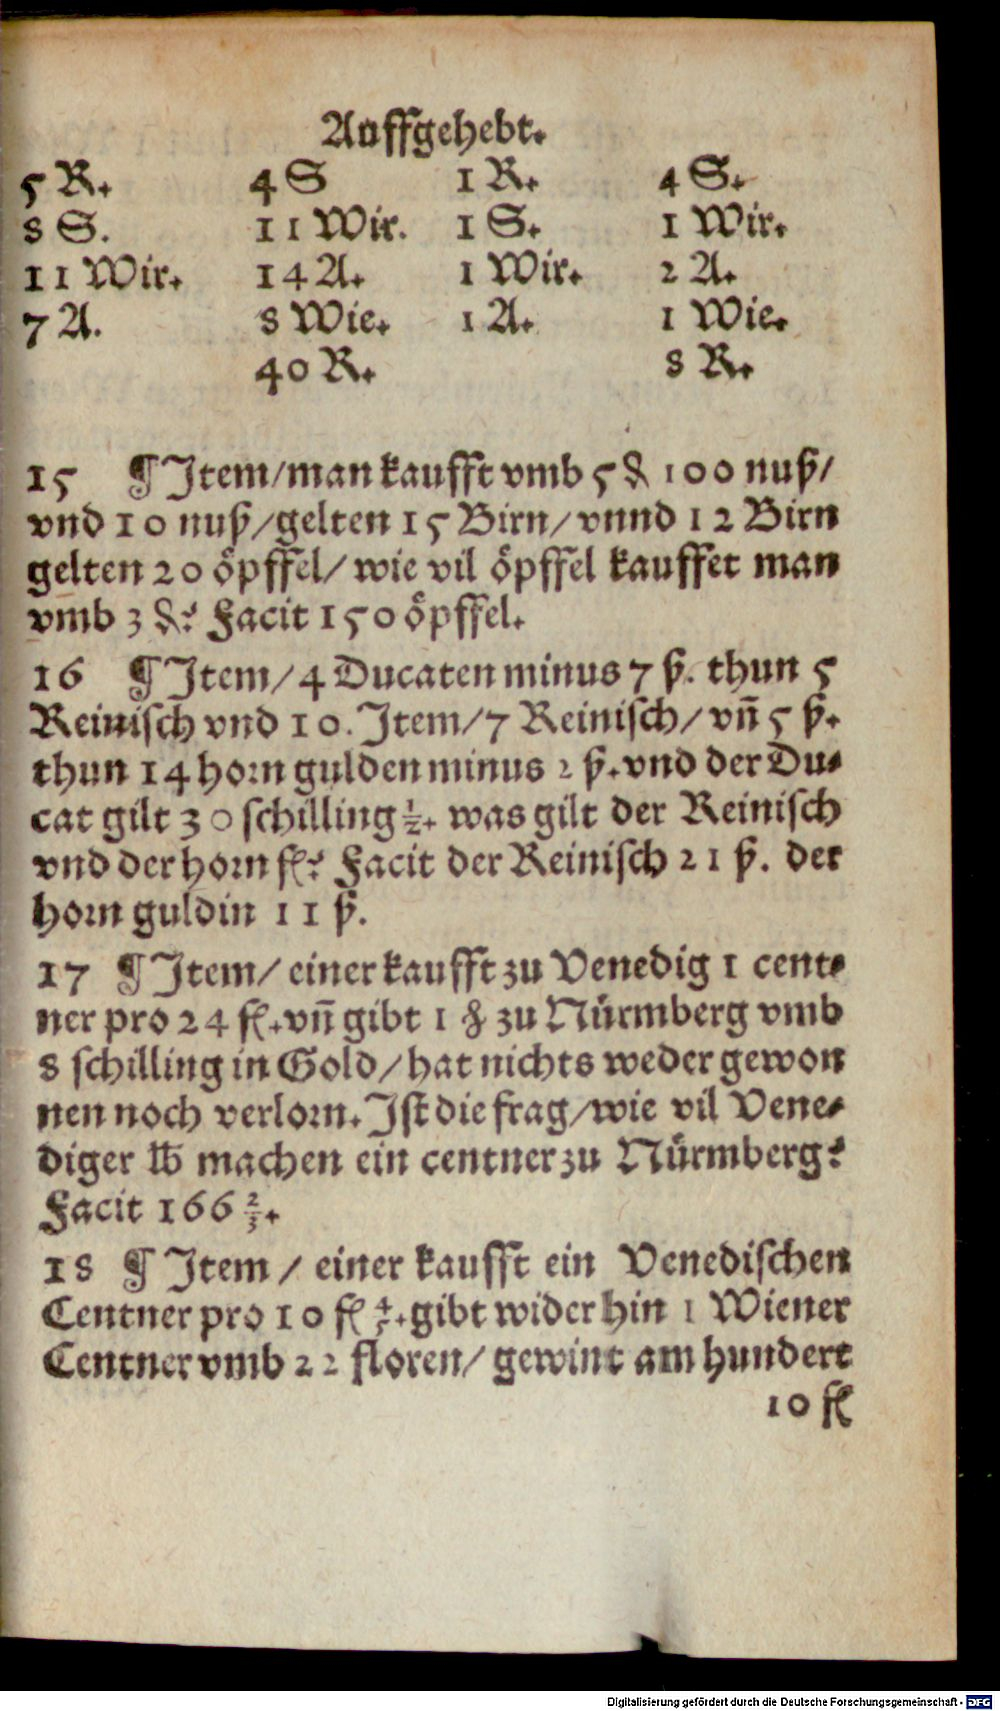 Auffgehebt.
5 R. 4 S 1 R. 4 S.
8 S. 11 Wir. 1 S. 1 Wir.
11 Wir. 14 A. 1 Wir. 2 A.
7 A. 8 Wie. 1 A. 1 Wie.
40 R. 8 R.
15 ¶ Item/man kaufft vmb 5 ₰ 100 nuß/
vnd 10 nuß/gelten 15 Birn/vnnd 12 Birn
gelten 20 öpffel/ wie vil öpffel kauffet man
vmb 3 ₰? Facit 150 öpffel.
16 ¶ Item/4 Ducaten minus 7 ß. thun 5
Reinisch vnd 10. Item/7 Reinisch/vn̄ 5 ß.
thun 14 horn gulden minus 2 ß.vnd der Du⸗
cat gilt 30 schilling ½. was gilt der Reinisch
vnd der horn fl? Facit der Reinisch 21 ß. der
horn guldin 11 ß.
17 ¶ Item/ einer kaufft zu Venedig 1 cent⸗
ner pro 24 fl.vn̄ gibt 1 ℔ zu Nürmberg vmb
8 schilling in Gold/hat nichts weder gewon
nen noch verlorn.Ist die frag/wie vil Vene⸗
diger ℔ machen ein centner zu Nürmberg?
Facit 166 ⅔.
18 ¶ Item / einer kaufft ein Venedischen
Centner pro 10 fl ⅘.gibt wider hin 1 Wiener
Centner vmb 22 floren/ gewint am hundert
10 fl
Digitalisierung gefördert durch die Deutsche Forschungsgemeinschaft - DFG